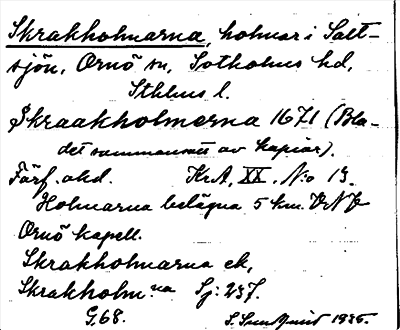 Skrakholmarna, holmar i Salt-
sjön, Ornö sn, Sotholms hd,
Sthlms l.
Skraakholmerna 1671 (Bla-
det sammansatt av kopior).
Förf. okd. KrA, XX. No 13.
Holmarna belägna 5 km. VNV
Ornö kapell.
Skrakholmarna ek,
Skrakholm.na Sj: 237.
G,68. S. Sundquist 1935.